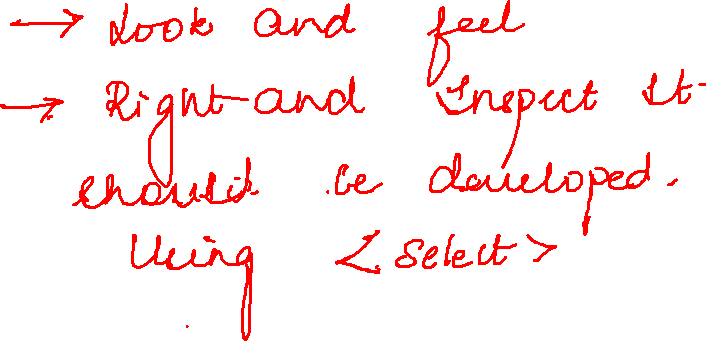 → Look and feel
→ Right and Inspect It
should be developed.
Using <select>